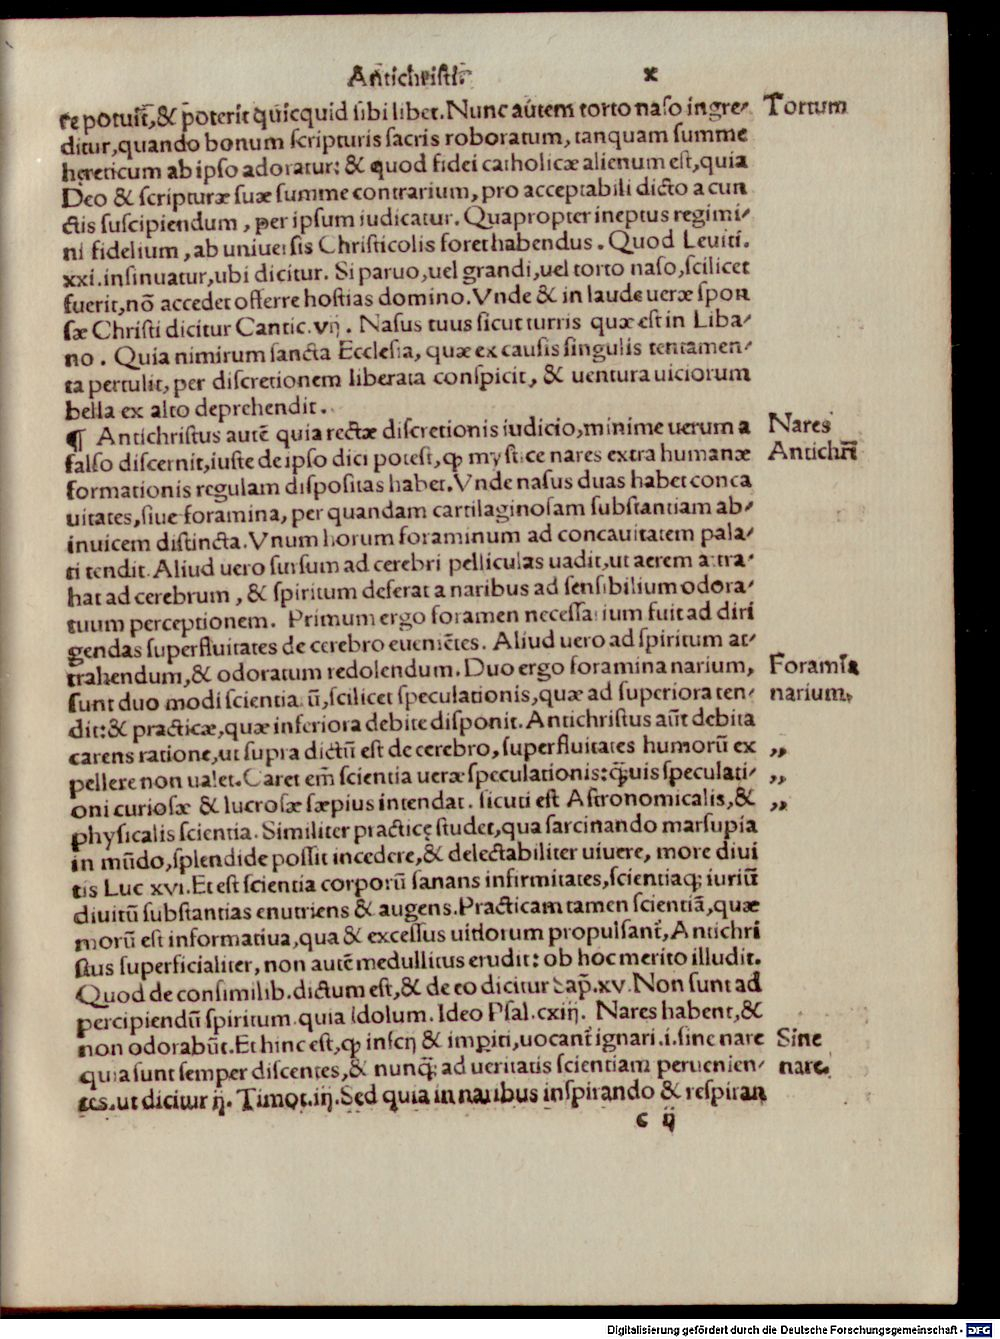 Antichristi. x
re potuit̄, & p̄oterit quicquid sibi libet. Nunc autem torto naso ingre⸗ Tortum
ditur, quando bonum scripturis sacris roboratum, tanquam summe
hęreticum ab ipso adoratur: & quod fidei catholicæ alienum est, quia
Deo & scripturæ suæ summe contrarium, pro acceptabili dicto a cun
ctis suscipiendum, per ipsum iudicatur. Quapropter ineptus regimi⸗
ni fidelium, ab uniuersis Christicolis foret habendus. Quod Leuiti.
xxi. insinuatur, ubi dicitur. Si paruo, uel grandi, uel torto naso, scilicet
fuerit, nō accedet offerre hostias domino. Vnde & in laude ueræ spon
sæ Christi dicitur Cantic. vij. Nasus tuus sicut turris quæ est in Liba⸗
no. Quia nimirum sancta Ecclesia, quæ ex causis singulis tentamen⸗
ta pertulit, per discretionem liberata conspicit, & uentura uiciorum
bella ex alto deprehendit.
¶ Antichristus autē quia rectæ discretionis iudicio, minime uerum a Nares
falso discernit, iuste de ipso dici potest, ꝙ mystice nares extra humanæ Antichrī
formationis regulam dispositas habet. Vnde nasus duas habet conca
uitates, siue foramina, per quandam cartilaginosam substantiam ab⸗
inuicem distincta. Vnum horum foraminum ad concauitatem pala⸗
ti tendit. Aliud uero sursum ad cerebri pelliculas uadit, ut aerem attra⸗
hat ad cerebrum, & spiritum deferat a naribus ad sensibilium odora⸗
tuum perceptionem. Primum ergo foramen necessarium fuit ad diri
gendas superfluitates de cerebro euemētes. Aliud uero ad spiritum at⸗
trahendum, & odoratum redolendum. Duo ergo foramina narium, Foramīa
sunt duo modi scientiarū, scilicet speculationis, quæ ad superiora ten⸗ narium.
dit: & practicæ, quæ inferiora debite disponit. Antichristus aūt debita
carens ratione, ut supra dictū est de cerebro, superfluitates humorū ex ,,
pellere non ualet. Caret em̄ scientia ueræ speculationis: q̄uis speculati⸗ ,,
oni curiosæ & lucrosæ sæpius intendat. sicuti est Astronomicalis, & ,,
physicalis scientia. Similiter practicę studet, qua sarcinando marsupia
in mūdo, splendide possit incedere, & delectabiliter uiuere, more diui
tis Luc xvi. Et est scientia corporū sanans infirmitates, scientiaq; iuriū
diuitū substantias enutriens & augens. Practicam tamen scientiā, quæ
morū est informatiua, qua & excessus uitiorum propulsant̄, Antichri
stus superficialiter, non autē medullitus erudit: ob hoc merito illudit.
Quod de consimilib. dictum est, & de eo dicitur Sap̄. xv. Non sunt ad
percipiendū spiritum quia Idolum. Ideo Psal. cxiij. Nares habent, &
non odorabūt. Et hinc est, ꝙ inscij & imperiti, uocant̄ ignari .i. sine nare Sine
quia sunt semper discentes, & nunq̄ ad ueritatis scientiam peruenien⸗ nare.
tes. ut dicitur ij. Timot. iij. Sed quia in naribus inspirando & respiran
c ij
Digitalisierung gefördert durch die Deutsche Forschungsgemeinschaft - DFG